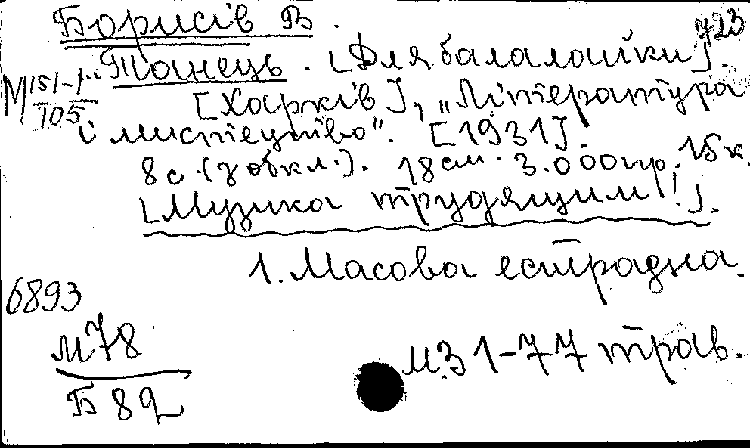 Борисів В.
723
Танець. [Для балалайки].
М 151-1
105
[Харків], „Література
і мистецтво". [1931].
8 с. (з обкл.). 18 см. 3.000 пр. 15 к.
[Музика трудящим!].
1. Масова естрадна.
6893
М78
Б 82
М.З 1-77 трав.